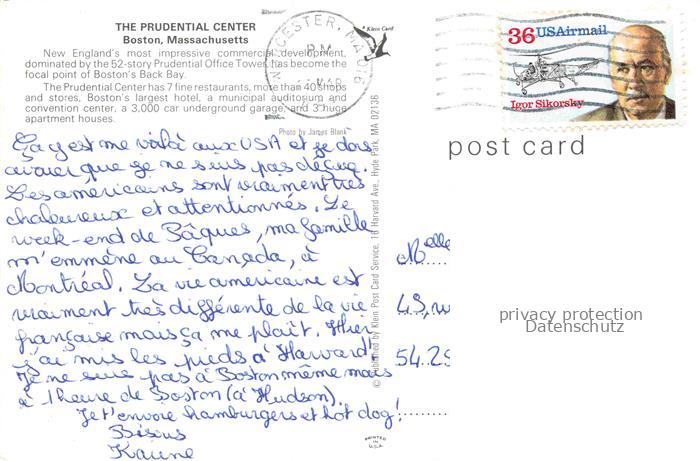 THE PRUDENTIAL CENTER
Boston, Massachusetts
New England's most impressive commercial development,
dominated by the 52-story Prudential Office Tower, has become the
focal point of Boston's Back Bay.
The Prudential Center has 7 fine restaurants, more than 40 shops
and stores, Boston's largest hotel, a municipal auditorium and
convention center, a 3,000 car underground garage, and 3 huge
apartment houses.
Photo by James Blank
Klein Card
PM
MAR
36 USAirmail
Igor Sikorsky
post card
Ça y est me voilà aux USA et je dois
avouer que je ne suis pas déçue.
Les américains sont vraiment très
chaleureux et attentionnés. Le
week-end de Pâques, ma famille
m'emmène au Canada, à
Montréal. La vie américaine est
vraiment très différente de la vie
française mais ça me plaît. Hier
j'ai mis les pieds à Harvard!
Je ne suis pas à Boston même mais
à 1 heure de Boston (à Hudson).
Je t'envoie hamburgers et hot dog!
Bisous
Karine
© Published by Klein Post Card Service, 10 Harvard Ave., Hyde Park, MA 02136
PRINTED
IN
U.S.A.
Melle
privacy protection
Datenschutz